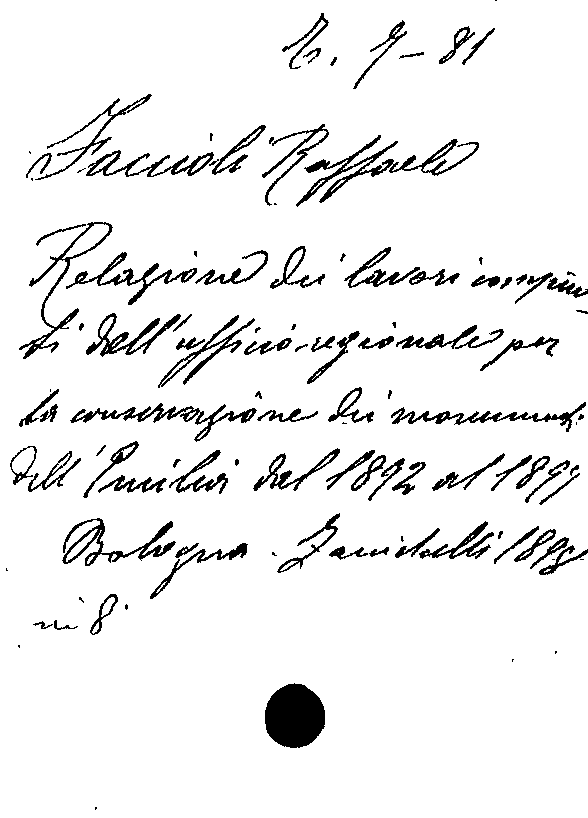 7-81
Faccioli Raffaele
Relazione dei lavori compiu-
ti dall'ufficio regionale per
la conservazione dei monumenti
dell'Emilia dal 1892 al 1897
Bologna. Zanichelli 1898
in 8°